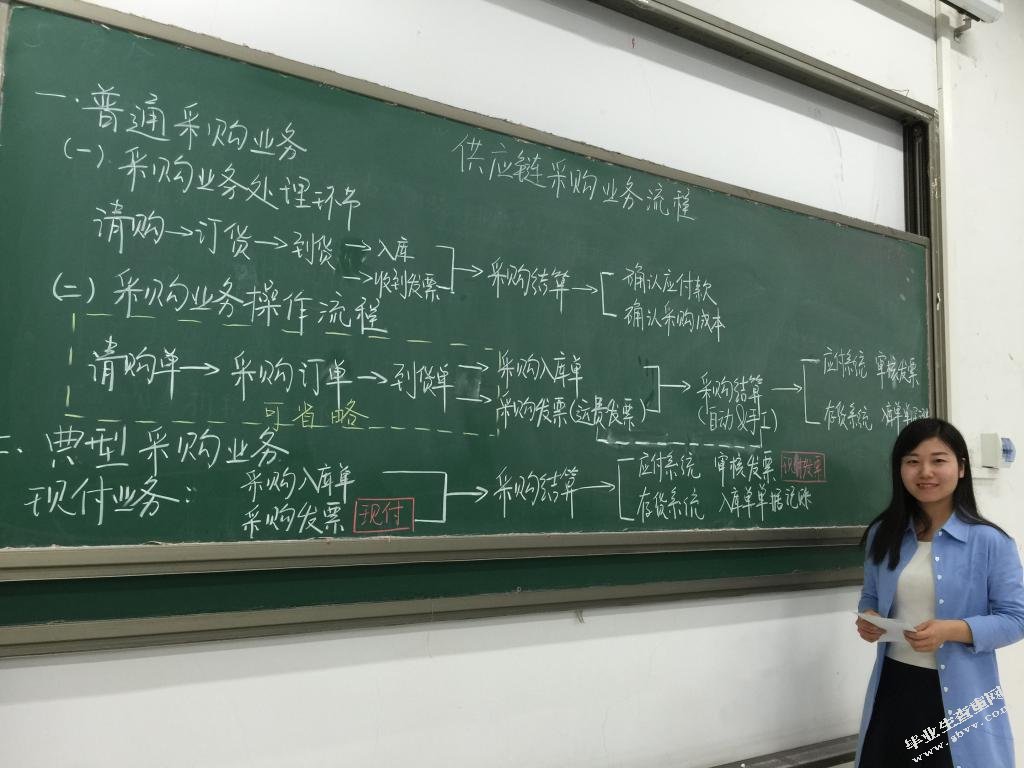 供应链采购业务流程
一.普通采购业务
(一)采购业务处理环节
请购→订货→到货→入库
→收到发票
→采购结算→
确认应付款
确认采购成本
(二)采购业务操作流程
请购单→采购订单→到货单→采购入库单
→采购发票(运费发票)
→采购结算→
(自动 手工)
应付系统 审核发票
存货系统 入库单
可省略
二、典型采购业务
现付业务:
采购入库单
采购发票 现付
→采购结算→
应付系统 审核发票
存货系统 入库单单据记账
毕业生查重网
www.sbvv.com